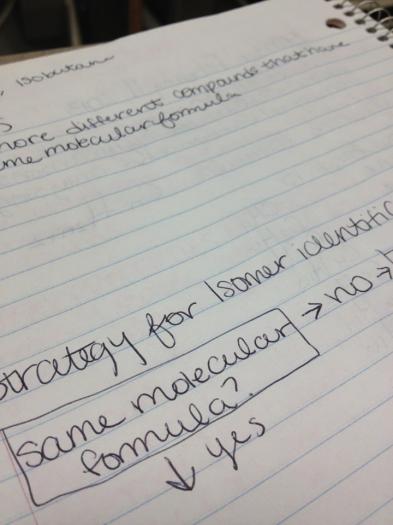 , isobutane
s
more different compounds that have
ame molecular formula
Strategy for Isomer identific
same molecular → no →
formula?
↓ yes